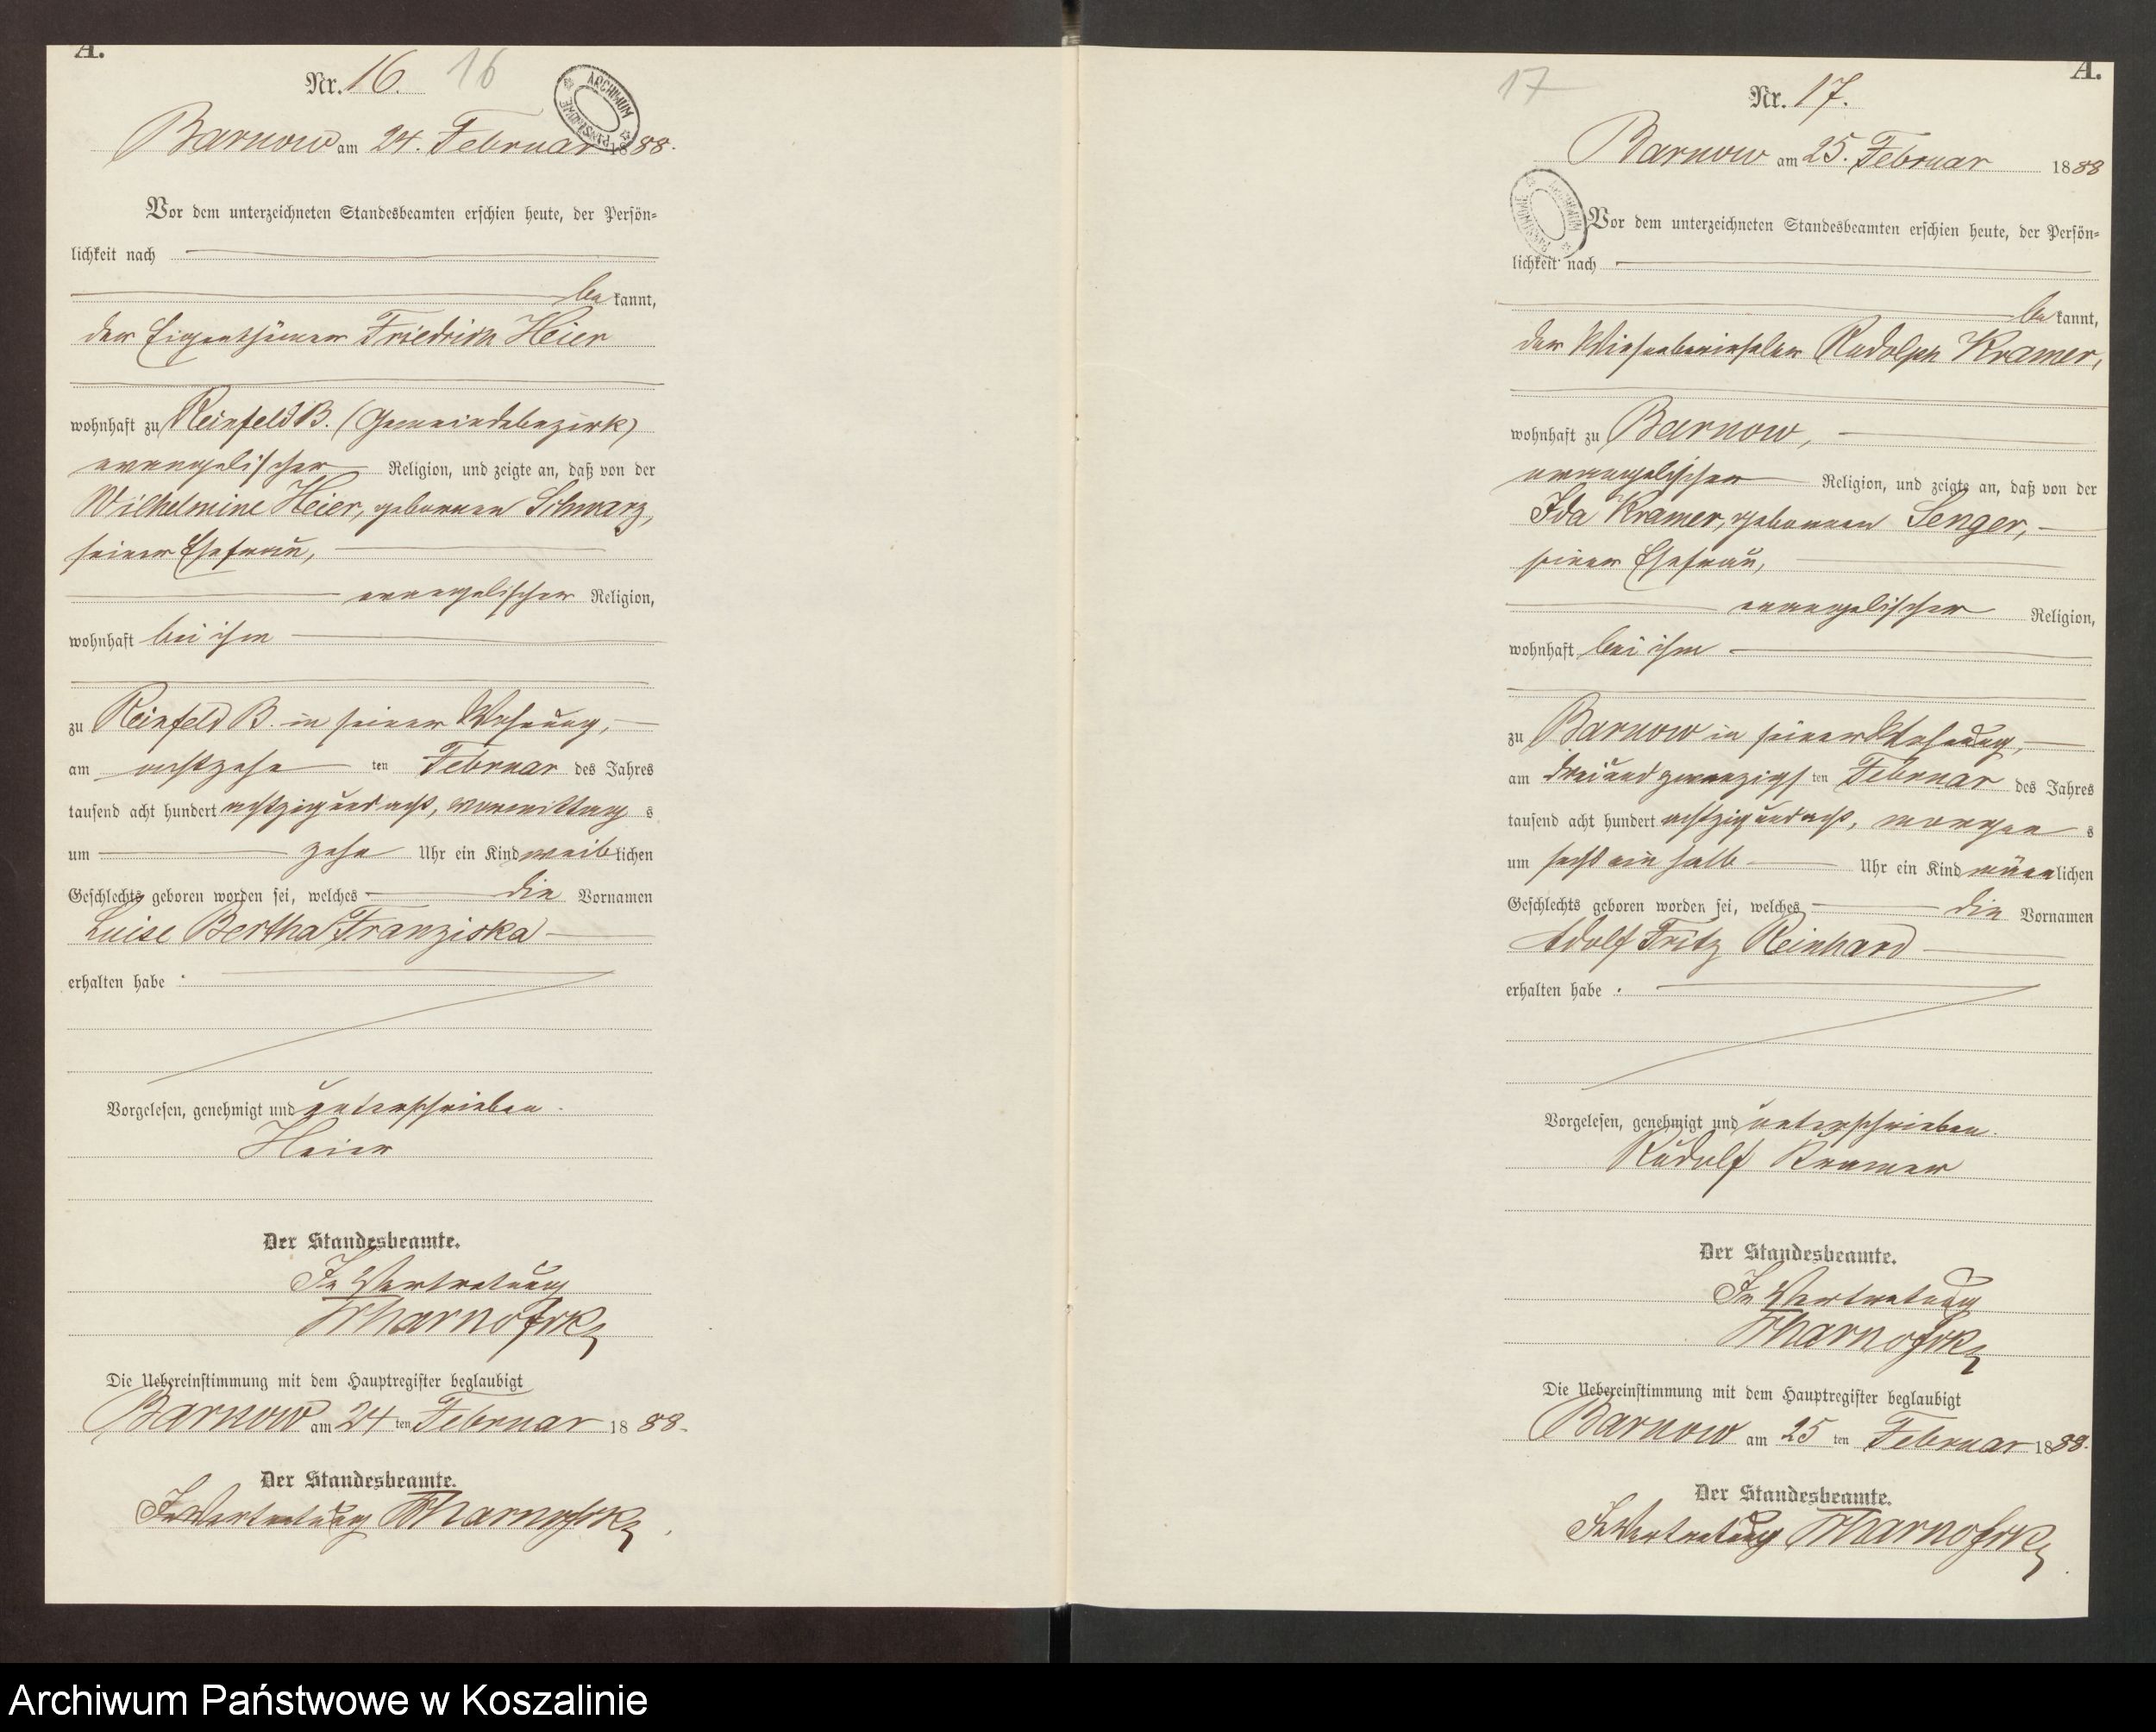 A.
Nr. 16. 16
ARCHIWUM PAŃSTWOWE
Barnow am 24. Februar 1888.
Vor dem unterzeichneten Standesbeamten erschien heute, der Persön-
lichkeit nach
be kannt,
der Eigenthümer Friedrich Heier
wohnhaft zu Reinfeld B. (Gemeindebezirk)
evangelischer Religion, und zeigte an, daß von der
Wilhelmine Heier, geborenen Schwarz,
seiner Ehefrau,
evangelischer Religion,
wohnhaft bei ihm
zu Reinfeld B. in seiner Wohnung,
am achtzehn ten Februar des Jahres
tausend acht hundert achtzig und acht, vormittag s
um zehn Uhr ein Kind weib lichen
Geschlechts geboren worden sei, welches die Vornamen
Luise Bertha Franziska
erhalten habe .
Vorgelesen, genehmigt und unterschrieben.
Heier
Der Standesbeamte.
In Vertretung
Die Uebereinstimmung mit dem Hauptregister beglaubigt
Barnow am 24 ten Februar 1888.
Der Standesbeamte.
In Vertretung
A.
17 Nr. 17.
Barnow am 25. Februar 1888
Vor dem unterzeichneten Standesbeamten erschien heute, der Persön-
lichkeit nach
be kannt,
der Wiesenberieseler Rudolph Kramer,
wohnhaft zu Barnow,
evangelischer Religion, und zeigte an, daß von der
Ida Kramer, geborenen Senger,
seiner Ehefrau,
evangelischer Religion,
wohnhaft bei ihm
zu Barnow in seiner Wohnung,
am dreiundzwanzigs ten Februar des Jahres
tausend acht hundert achtzig und acht, morgen s
um sechs ein halb Uhr ein Kind männ lichen
Geschlechts geboren worden sei, welches die Vornamen
Adolf Fritz Reinhard
erhalten habe .
Vorgelesen, genehmigt und unterschrieben.
Rudolf Kramer
Der Standesbeamte.
In Vertretung
Die Uebereinstimmung mit dem Hauptregister beglaubigt
Barnow am 25 ten Februar 1888.
Der Standesbeamte.
In Vertretung
Archiwum Państwowe w Koszalinie